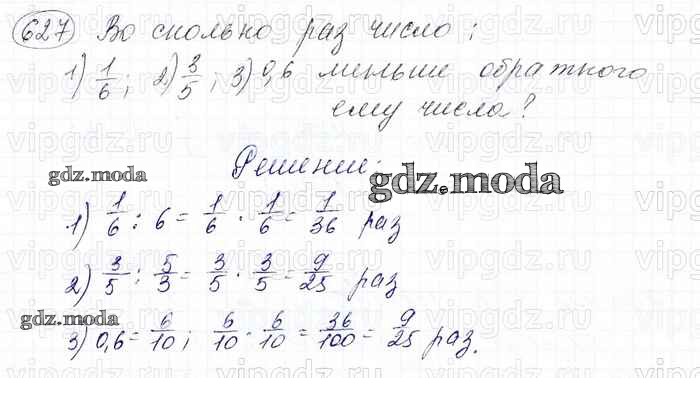 627 Во сколько раз число:
1) 1/6; 2) 3/5; 3) 0,6 меньше обратного
ему числа?
gdz.moda
Решение:
gdz.moda
1) 1/6 : 6 = 1/6 · 1/6 = 1/36 раз
2) 3/5 : 5/3 = 3/5 · 3/5 = 9/25 раз
gdz.moda
3) 0,6 = 6/10; 6/10 · 6/10 = 36/100 = 9/25 раз.
vipgdz.ru